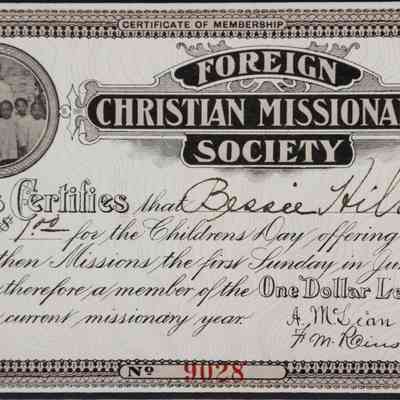 CERTIFICATE OF MEMBERSHIP
FOREIGN
CHRISTIAN MISSIONA
SOCIETY
s Certifies that Bessie Hil
1.00 for the Childrens Day offering
then Missions the first Sunday in Ju
therefore a member of the One Dollar Le
current missionary year.
A. McLean
F. M. Rains
No 9028